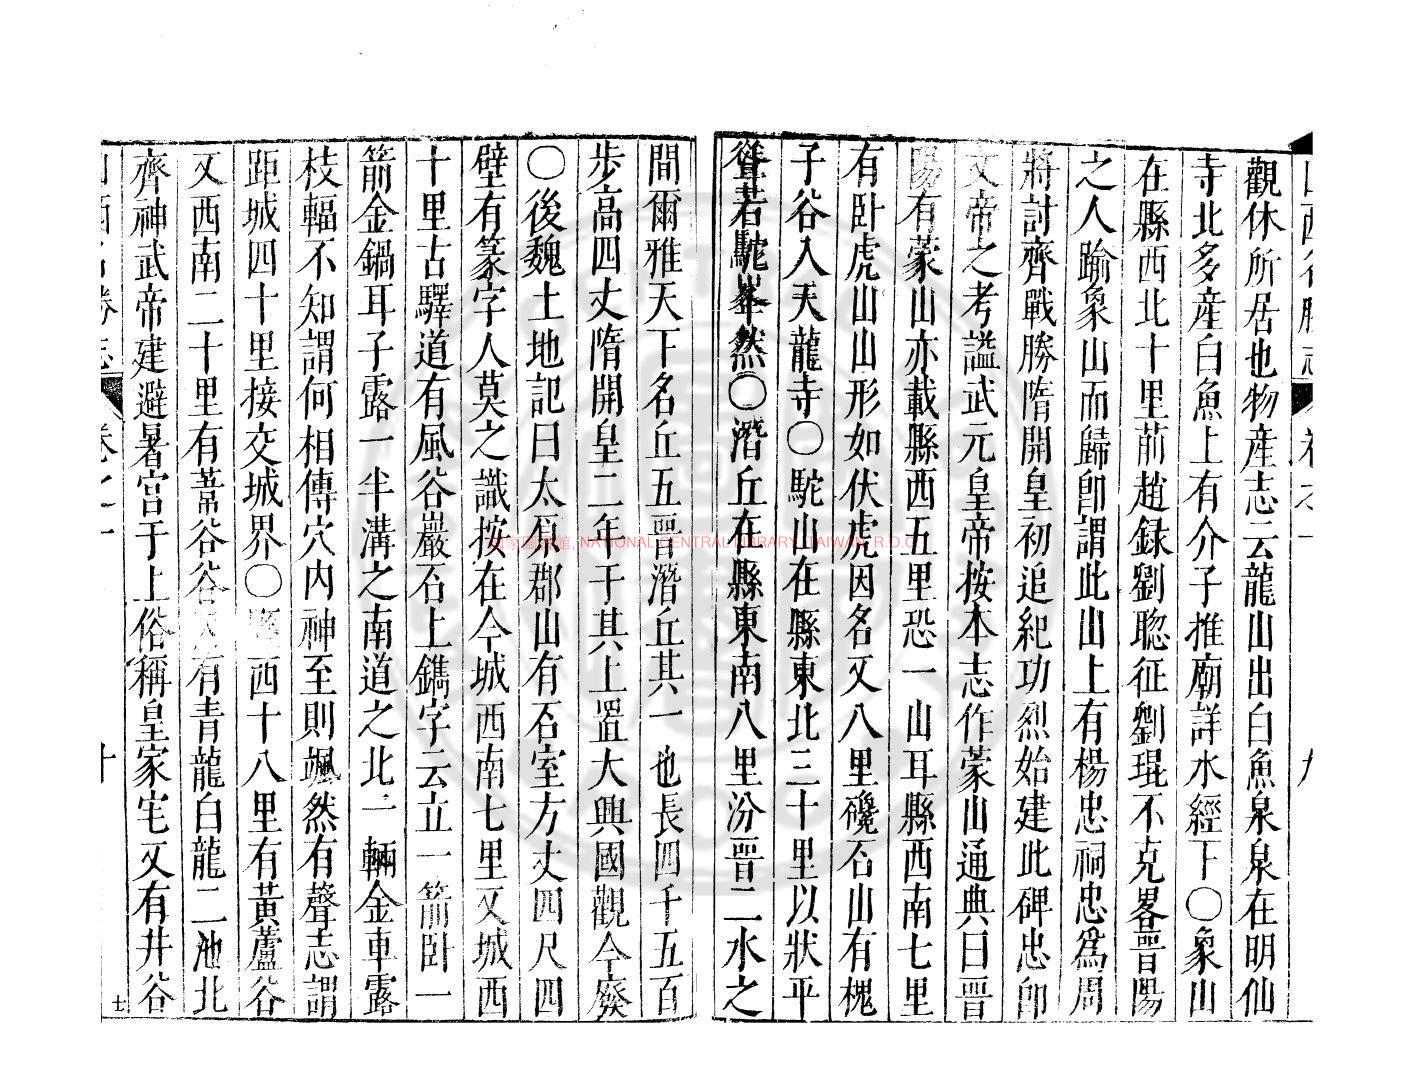 觀休所居也物產志云龍山出白魚泉泉在明仙
寺北多產白魚上有介子推廟詳水經下〇象山
在縣西北十里前趙錄劉聰征劉琨不克畧晉陽
之人踰象山而歸卽謂此山上有楊忠祠忠爲周
將討齊戰勝隋開皇初追紀功烈始建此碑忠卽
文帝之考謚武元皇帝按本志作蒙山通典曰晉
陽有蒙山亦載縣西五里恐一山耳縣西南七里
有臥虎山山形如伏虎因名又八里磛石山有槐
子谷入天龍寺〇駝山在縣東北三十里以狀平
聳若駝峯然〇潛丘在縣東南八里汾晉二水之
間爾雅天下名丘五晉潛丘其一也長四千五百
步高四丈隋開皇二年于其上置大興國觀今廢
〇後魏土地記曰太原郡山有石室方丈四尺四
壁有篆字人莫之識按在今城西南七里又城西
十里古驛道有風谷巖石上鐫字云立一箭臥一
箭金鍋耳子露一半溝之南道之北一輛金車露
枝輻不知謂何相傳穴內神至則颯然有聲志謂
距城四十里接交城界〇縣西十八里有黃蘆谷
又西南二十里有葦谷谷有青龍白龍二池北
齊神武帝建避暑宮于上俗稱皇家宅又有井谷
山西名勝志 卷之一 十
國家圖書館, NATIONAL CENTRAL LIBRARY, TAIWAN, R.O.C